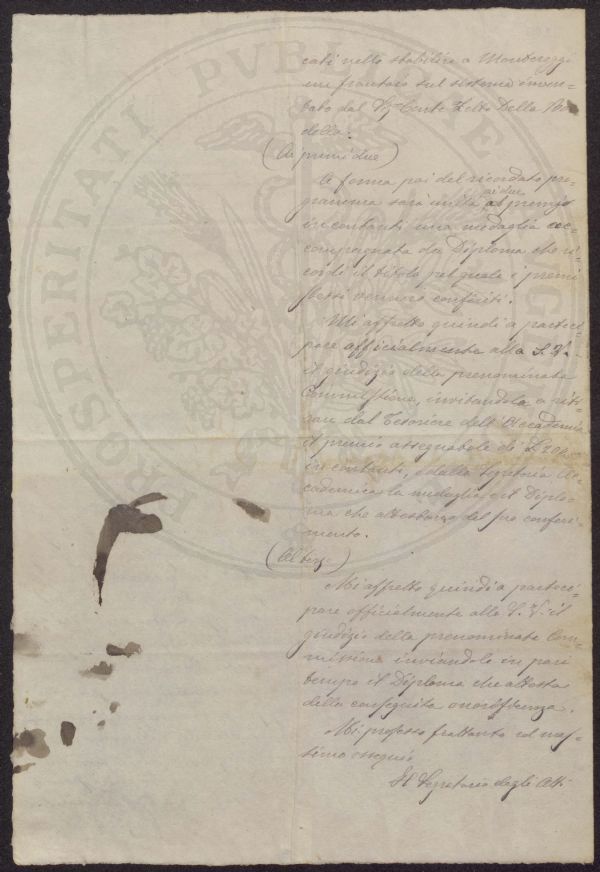 PROSPERITATI PUBLICAE AUGENDAE
cati nello stabilire a Montereggi
un frantoio sul sistema inven-
tato dal Conte Della
della.
(Ai primi due)
A forma poi del ricordato pro-
gramma sara unita ai due
al premio
in contanti una medaglia ac-
compagnata da Diploma che ri-
cordi il titolo pel quale i premi
stessi vennero conferiti.
Mi affretto quindi a parteci-
pare officialmente alla S. V.
il giudizio della prenominata
Commissione, invitandola a riti-
rare dal Tesoriere dell'Accademia
il premio assegnatole di L. 200
in contanti, e dalla Segreteria Ac-
cademica la medaglia, e il Diplo-
ma che attestano del suo conferi-
mento.
(Al terzo)
Mi affretto quindi a parteci-
pare officialmente alla S. V. il
giudizio della prenominata Com-
missione inviandole in pari
tempo il Diploma che attesta
della conseguita onorificenza.
Mi professo frattanto col mas-
simo ossequio
Il Segretario degli Atti